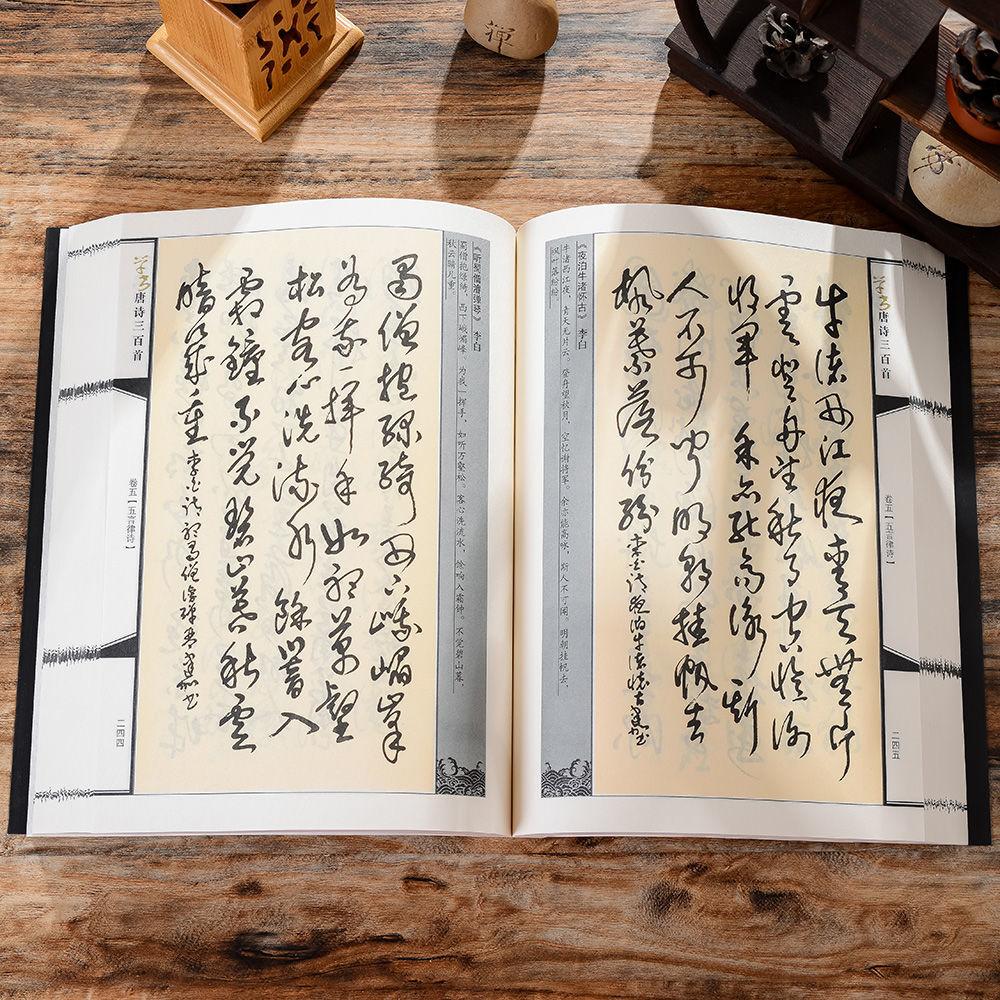 禪
草书唐诗三百首
卷五【五言律诗】
二四四
《听蜀僧濬弹琴》 李白
蜀僧抱绿绮,西下峨嵋峰。为我一挥手,如听万壑松。客心洗流水,馀响入霜钟。不觉碧山暮,
秋云暗几重。
蜀僧抱绿绮西下峨嵋峰
為我一挥手如听万壑
松客心洗流水馀響入
霜鐘不觉碧山暮秋雲
暗几重 李白诗听蜀僧濬弹琴
草书唐诗三百首
卷五【五言律诗】
二四五
牛渚西江夜青天無片
雲登舟望秋月空憶谢
将軍余亦能高詠斯
人不可闻明朝挂帆去
楓葉落纷纷 李白诗夜泊牛渚怀古
《夜泊牛渚怀古》 李白
牛渚西江夜,青天无片云。登舟望秋月,空忆谢将军。余亦能高咏,斯人不可闻。明朝挂帆去,
枫叶落纷纷。